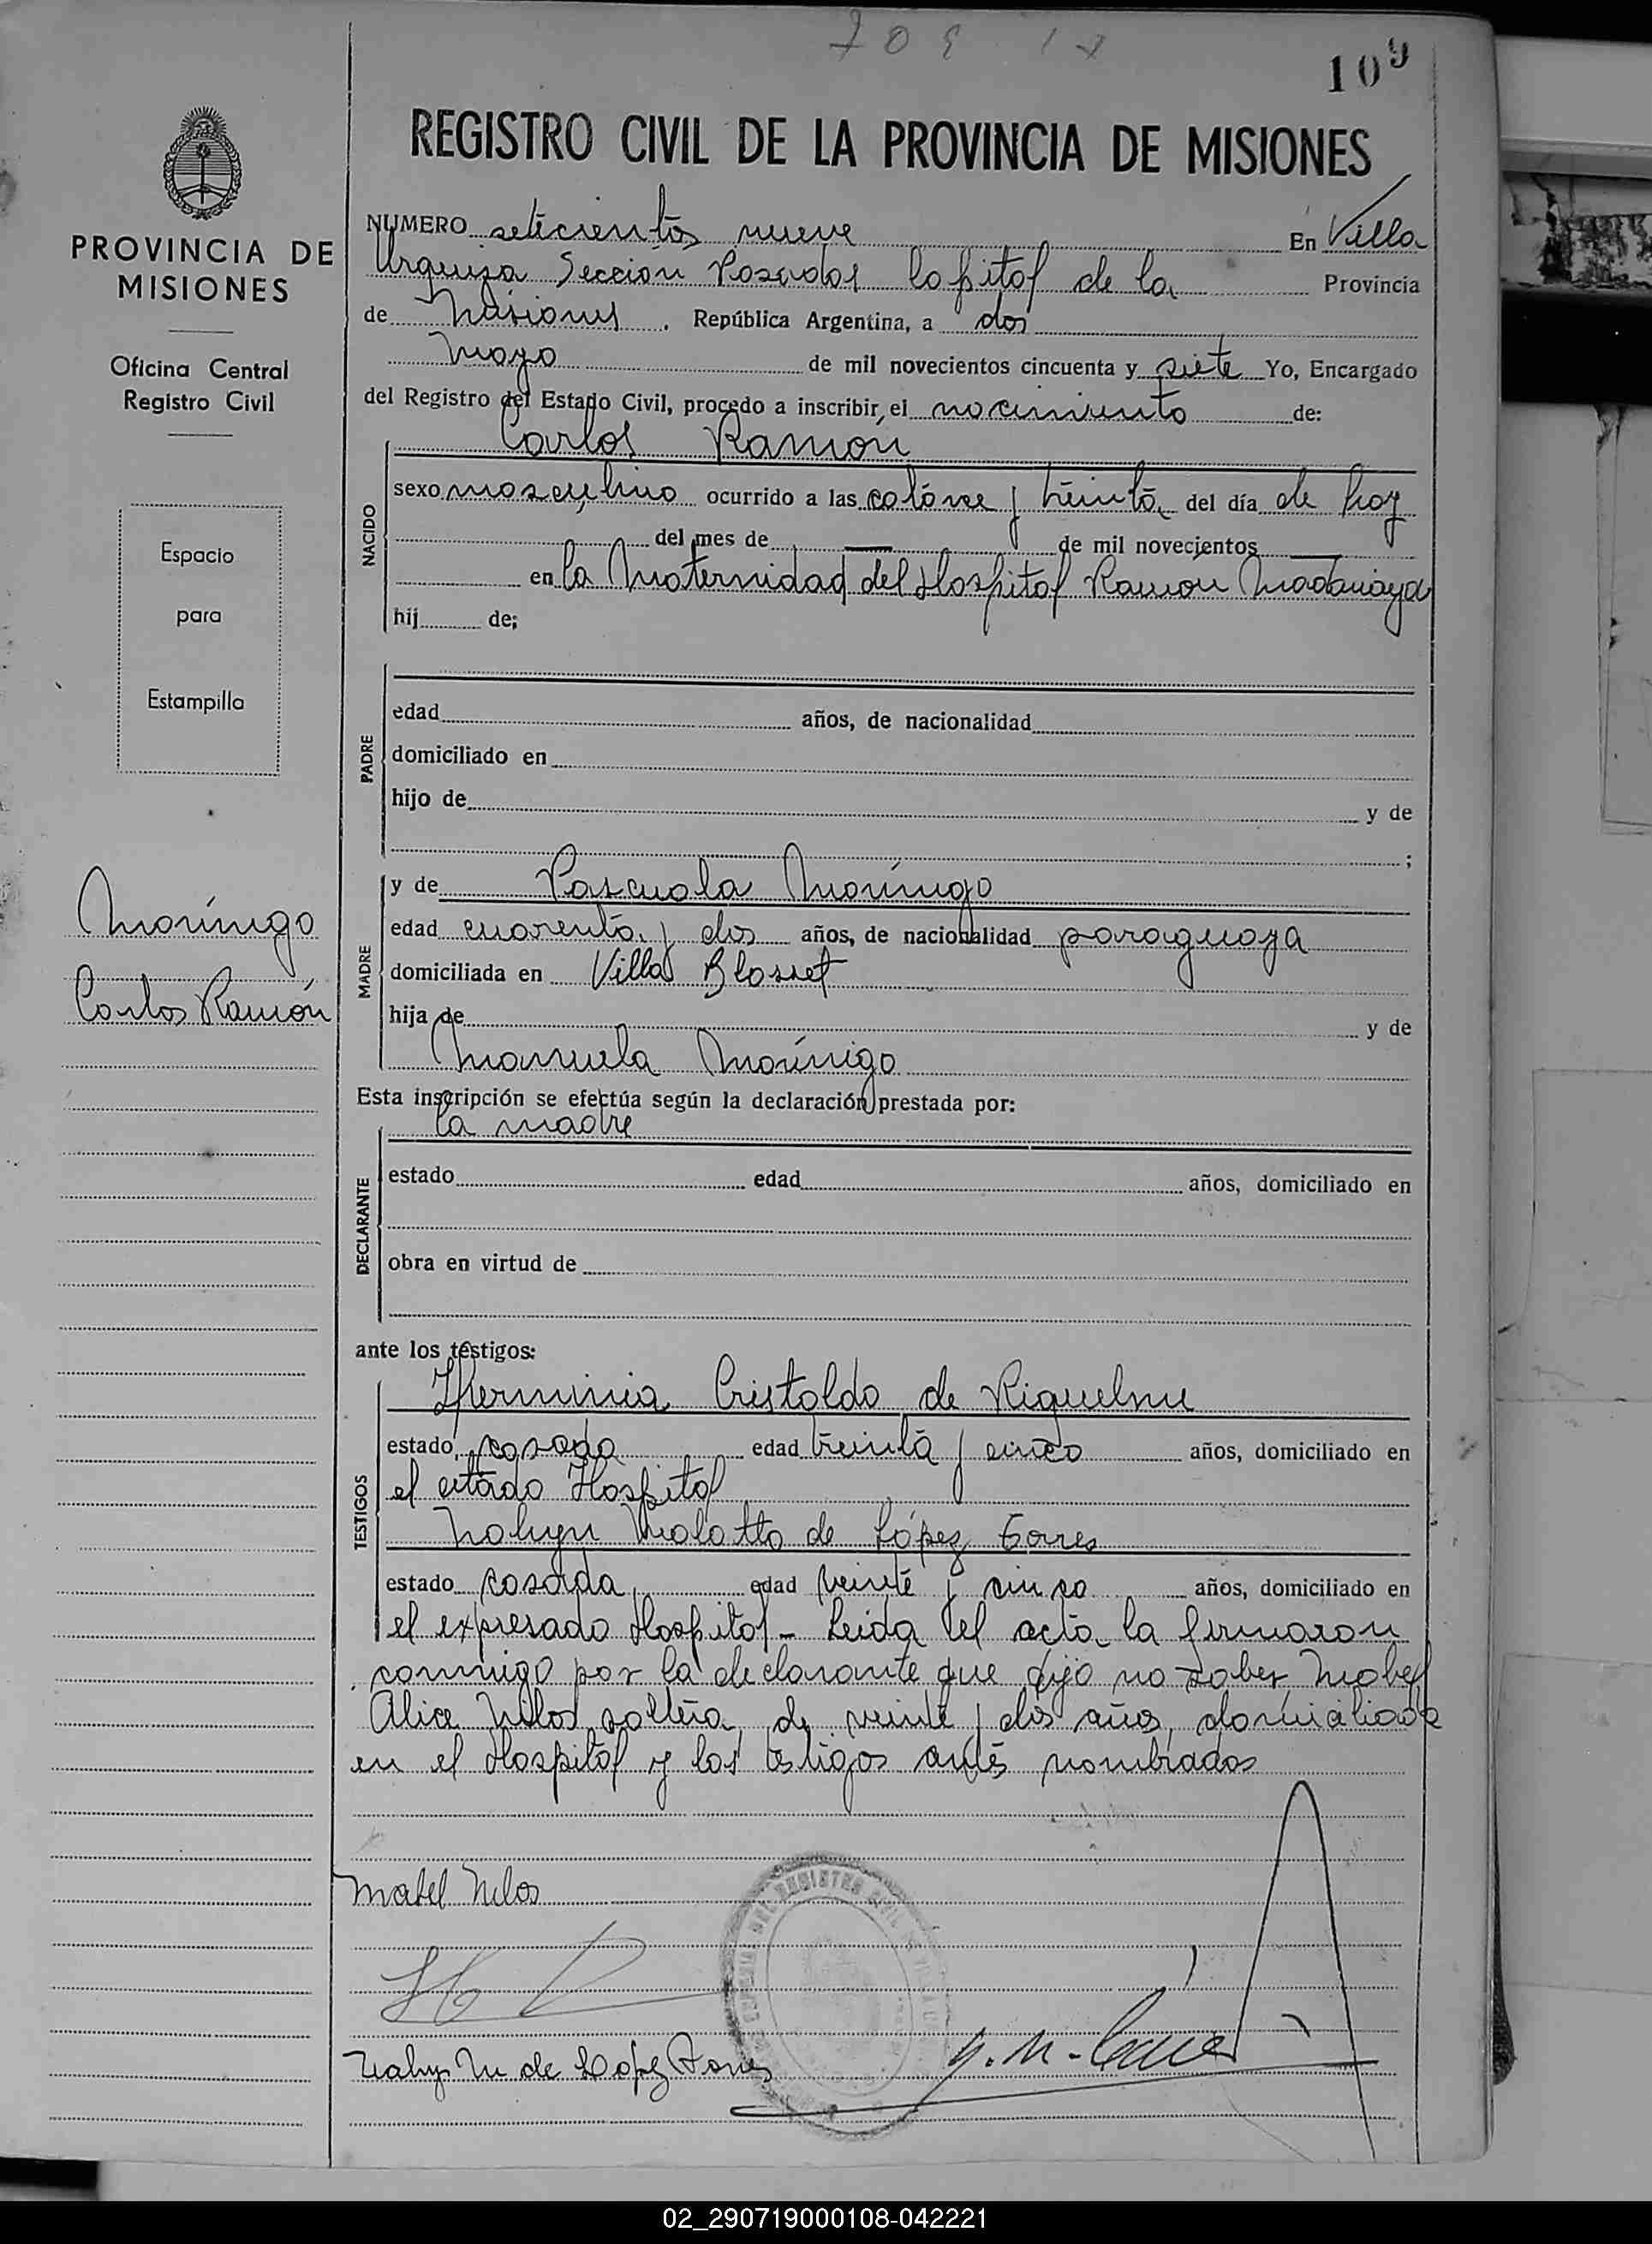 709
109
REGISTRO CIVIL DE LA PROVINCIA DE MISIONES
PROVINCIA DE
MISIONES
Oficina Central
Registro Civil
Espacio
para
Estampilla
Morínigo
Carlos Ramón
NUMERO setecientos nueve En Villa
Urquiza Sección Posadas Capital de la Provincia
de Misiones. República Argentina, a dos
mayo de mil novecientos cincuenta y siete Yo, Encargado
del Registro del Estado Civil, procedo a inscribir, el nacimiento de:
NACIDO
Carlos Ramón
sexo masculino ocurrido a las catorce y treinta del día de hoy
del mes de — de mil novecientos —
en la Maternidad del Hospital Ramón Madariaga
hij de;
PADRE
edad años, de nacionalidad
domiciliado en
hijo de y de
;
MADRE
y de Pascuala Morínigo
edad cuarenta y dos años, de nacionalidad paraguaya
domiciliada en Villa Blosset
hija de y de
Manuela Morínigo
Esta inscripción se efectúa según la declaración prestada por:
DECLARANTE
la madre
estado edad años, domiciliado en
obra en virtud de
ante los testigos:
TESTIGOS
Herminia Cristaldo de Riquelme
estado casada edad treinta y cinco años, domiciliado en
el citado Hospital
Malatto de López Torres
estado casada edad veinte y cinco años, domiciliado en
el expresado Hospital - Leida el acta la firmaron
conmigo por la declarante que dijo no saber, Mabel
Alice soltera de veinte y dos años, domiciliada
en el Hospital y los testigos antes nombrados
Mabel
M de Lopez Torres
REGISTRO CIVIL
02_290719000108-042221